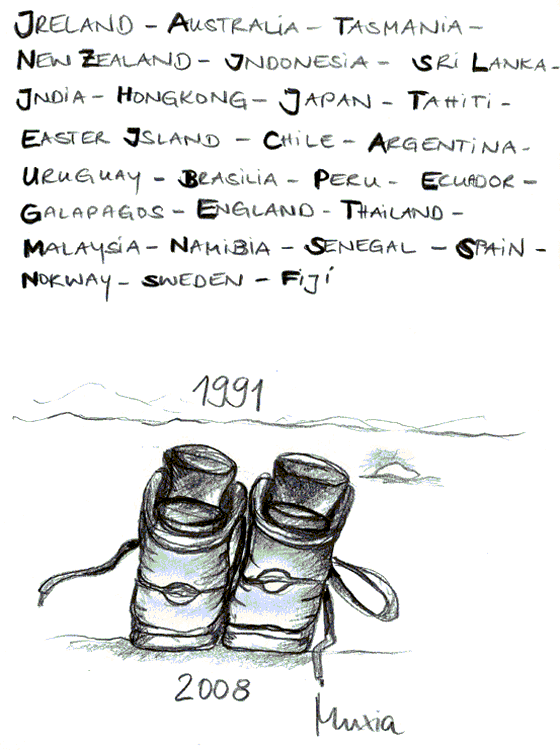 IRELAND - AUSTRALIA - TASMANIA -
NEW ZEALAND - INDONESIA - SRI LANKA -
INDIA - HONGKONG - JAPAN - TAHITI -
EASTER ISLAND - CHILE - ARGENTINA -
URUGUAY - BRASILIA - PERU - ECUADOR -
GALAPAGOS - ENGLAND - THAILAND -
MALAYSIA - NAMIBIA - SENEGAL - SPAIN -
NORWAY - SWEDEN - FIJI
1991
2008
Muxia